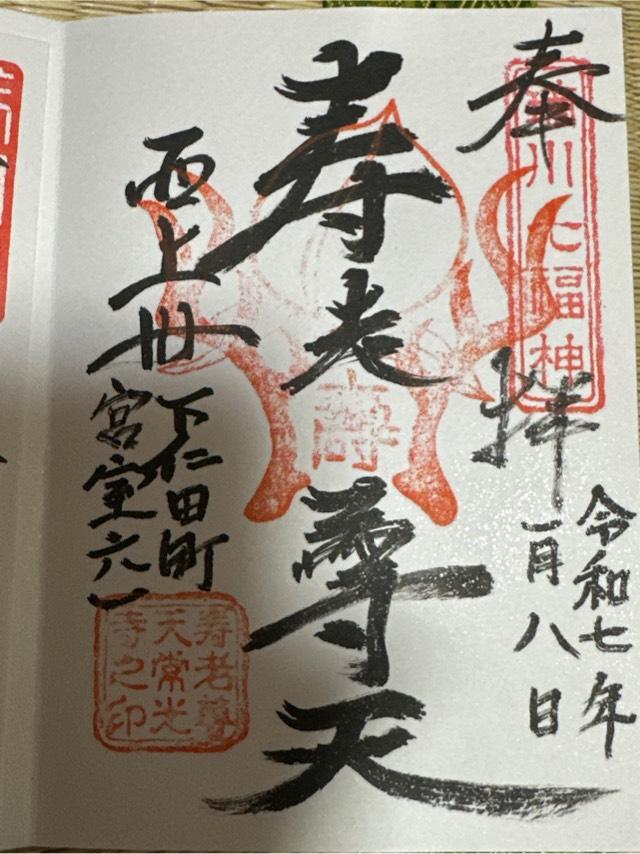 奉拝
川七福神
令和七年
一月八日
寿老尊天
壽
西上州
下仁田町
宮室六一
寿老尊
天常光
寺之印